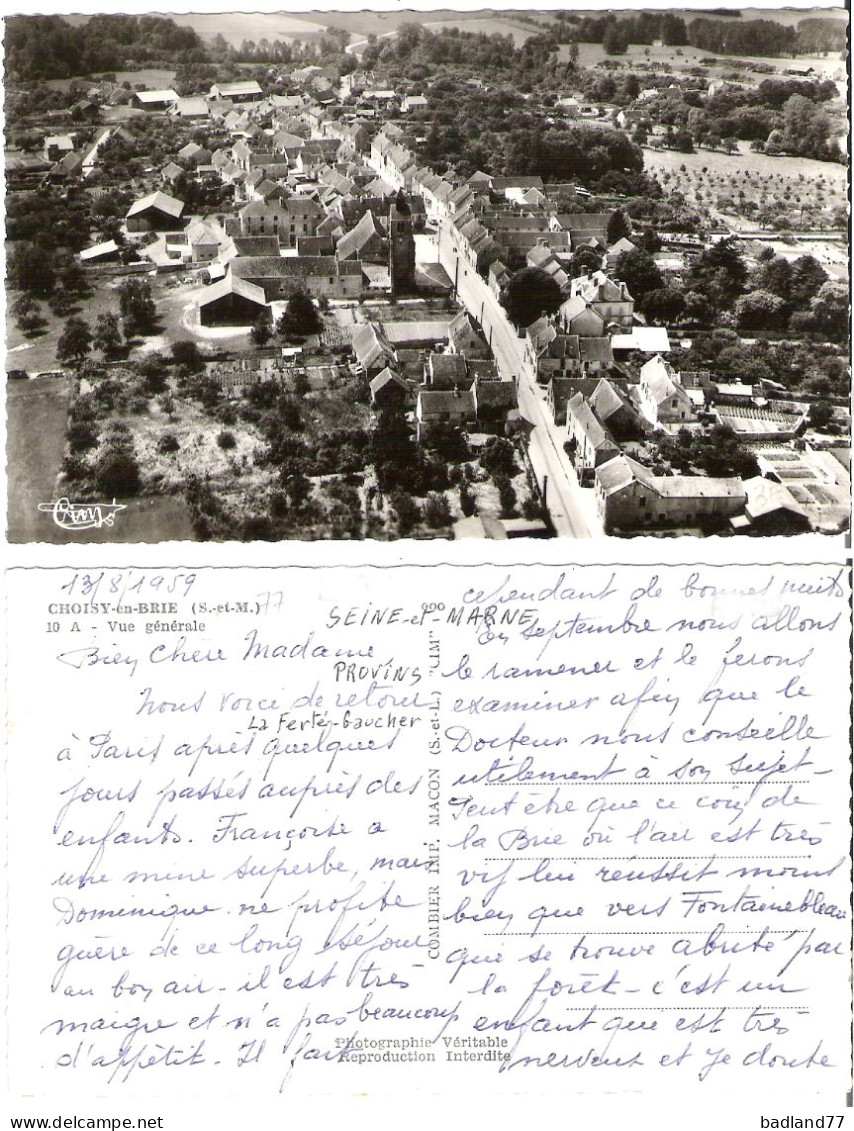 Cim
13/8/1959
CHOISY-en-BRIE (S.-et-M.) 77
10 A - Vue générale
SEINE-et-MARNE
PROVINS
La Ferté-Gaucher
Bien chère Madame
Nous voici de retour
à Paris après quelques
jours passés auprès des
enfants. Françoise a
une mine superbe, mais
Dominique ne profite
guère de ce long séjour
au bon air - il est très
maigre et n'a pas beaucoup
d'appétit. Il fait
COMBIER IMP. MACON (S.-et-L.) "CIM"
Photographie Véritable
Reproduction Interdite
cependant de bonnes nuits
En septembre nous allons
le ramener et le ferons
examiner afin que le
Docteur nous conseille
utilement à son sujet -
Peut être que ce coin de
la Brie où l'air est très
vif lui réussit moins
bien que vers Fontainebleau
que se trouve abrité par
la forêt - c'est un
enfant que est très
nerveux et je doute
badland77